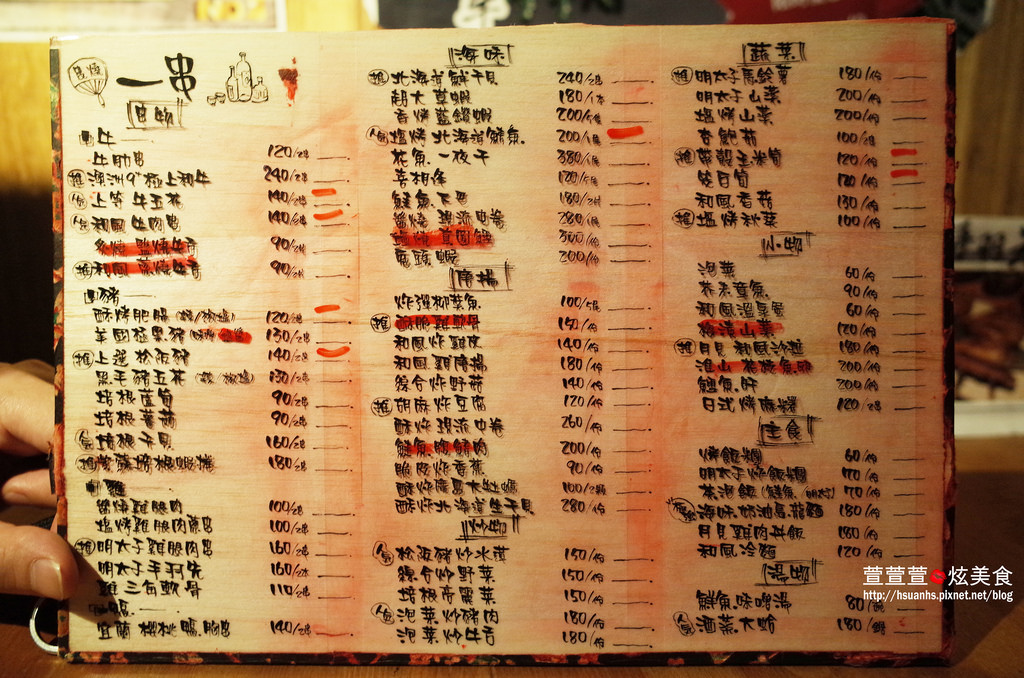 一串
串物
牛
牛肋串 120/2串
推 澳洲9⁺極上和牛 240/2串
人氣 上等牛五花 140/2串
人氣 和風牛肉串 140/2串
90/2串
推 和風 90/2串
豬
酥烤肥腸 120/2串
美國極黑豬 130/2串
推 上選松阪豬 140/2串
黑毛豬五花 130/2串
培根蘆筍 90/2串
培根蕃茄 90/2串
人氣 培根干貝 160/2串
推 紫蘇培根蝦捲 180/2串
雞
醬燒雞腿肉 100/2串
塩烤雞腿肉蔥串 100/2串
推 明太子雞腿肉串 160/2串
明太子手羽先 160/2本
雞三角軟骨 110/2串
鴨
宜蘭櫻桃鴨胸串 140/2串
海味
推 北海道鮮干貝 240/2串
胡大草蝦 180/2本
香烤藍鑽蝦 200/5隻
人氣 塩烤北海道鯡魚 200/1隻
花魚一夜干 380/1隻
喜相逢 120/5隻
鮭魚下巴 180/2付
醬燒現流中卷 280/1隻
300/1隻
200/份
唐揚
炸爆柳葉魚 100/5隻
推 酥脆雞軟骨 150/份
和風炸雞皮 140/份
和風雞唐揚 180/份
綜合炸野菇 140/份
推 胡麻炸豆腐 120/份
酥炸現流中卷 260/份
200/份
脆皮炸香蕉 90/份
酥炸廣島大牡蠣 100/2顆
酥炸北海道生干貝 280/份
炒物
人氣 松阪豬炒水蓮 150/份
綜合炒野菜 150/份
培根高麗菜 150/份
人氣 泡菜炒豬肉 180/份
泡菜炒牛舌 180/份
蔬菜
推 明太子馬鈴薯 180/份
明太子山藥 200/份
塩烤山藥 200/份
杏鮑菇 100/2串
推 帶殼玉米筍 120/份
茭白筍 120/份
和風香菇 130/份
推 塩烤秋葵 100/份
小物
泡菜 60/份
芥末章魚 90/份
和風溫泉蛋 60/份
梅漬山藥 120/份
推 月見和風冷麵 180/份
200/份
鱈魚肝 200/份
日式烤麻糬 120/2串
主食
烤飯糰 60/份
明太子炸飯糰 170/份
茶泡飯(鮭魚/明太子) 170/份
海味奶油烏龍麵 180/份
月見雞肉丼飯 180/份
和風冷麵 120/份
湯物
鮮魚味噌湯 80/碗
人氣 酒蒸大蛤 180/鍋
萱萱萱 炫美食
http://hsuanhs.pixnet.net/blog